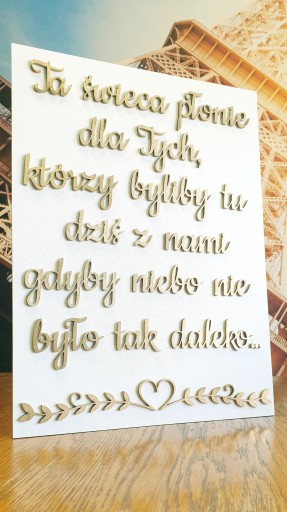 Ta świeca płonie
dla Tych,
którzy byliby tu
dziś z nami
gdyby niebo nie
było tak daleko...